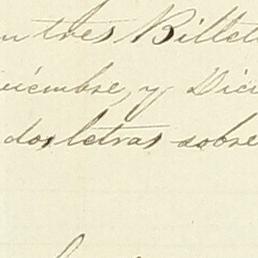 n tres Billet
viembre, y Dici
dos letras sobre